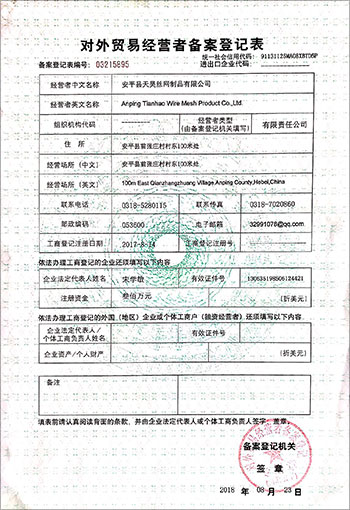 对外贸易经营者备案登记表
统一社会信用代码:
备案登记表编号: 03215895 进出口企业代码: 91131125MA08X8TD5P
经营者中文名称 安平县天昊丝网制品有限公司
经营者英文名称 Anping Tianhao Wire Mesh Product Co.,Ltd.
组织机构代码 经营者类型 (由备案登记机关填写) 有限责任公司
住 所 安平县前张庄村村东100米处
经营场所(中文) 安平县前张庄村村东100米处
经营场所(英文) 100m East Qianzhangzhuang Village Anping County,Hebei,China
联系电话 0318-5280115 联系传真 0318-7020860
邮政编码 053600 电子邮箱 32991076@qq.com
工商登记注册日期 2017-8-14 工商登记注册号
依法办理工商登记的企业还须填写以下内容
企业法定代表人姓名 有效证件号
注册资金 叁佰万元 (折美元)
依法办理工商登记的外国(地区)企业或个体工商户(独资经营者)还须填写以下内容
企业法定代表人/ 个体工商负责人姓名 有效证件号
企业资产/个人财产 (折美元)
备注
填表前请认真阅读背面的条款,并由企业法定代表人或个体工商负责人签字、盖章。
备案登记机关
签 章
2018 年 08 月 23 日